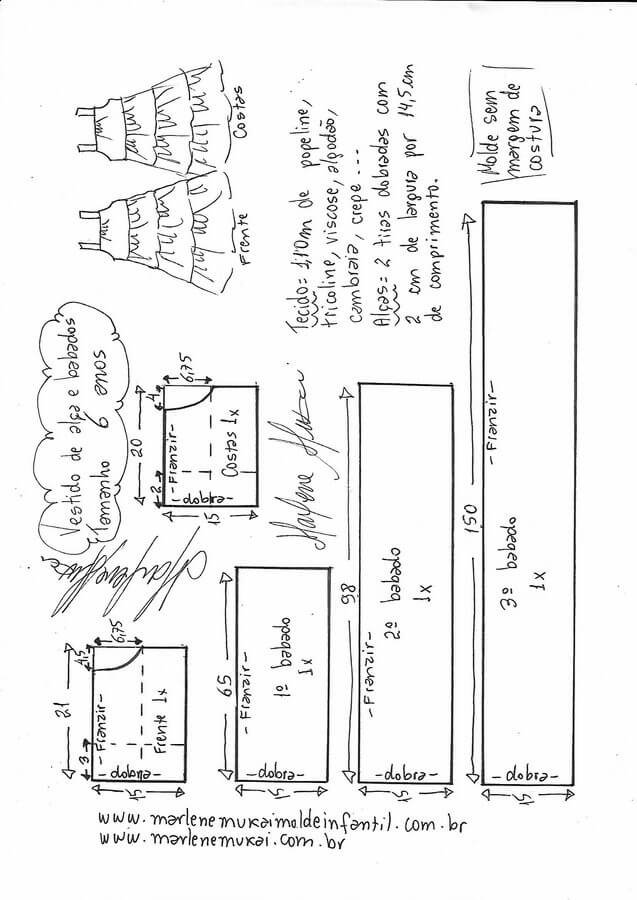 Vestido de alça e babados
Tamanho 6 anos
Frente
Costas
Tecido= 1,10m de popeline,
tricoline, viscose, algodão,
cambraia, crepe ...
Alças= 2 tiras dobradas com
2 cm de largura por 14,5 cm
de comprimento.
Molde sem
margem de
costura
21
3
4,5
6,75
-Franzir-
Frente 1x
-dobra-
15
20
2
4
6,75
-Franzir-
Costas 1x
-dobra-
15
Marlene Mukai
Marlene Mukai
65
-Franzir-
1º babado
1x
-dobra-
15
98
-Franzir-
2º babado
1x
-dobra-
15
150
-Franzir-
3º babado
1x
-dobra-
15
www.marlenemukaimoldeinfantil.com.br
www.marlenemukai.com.br